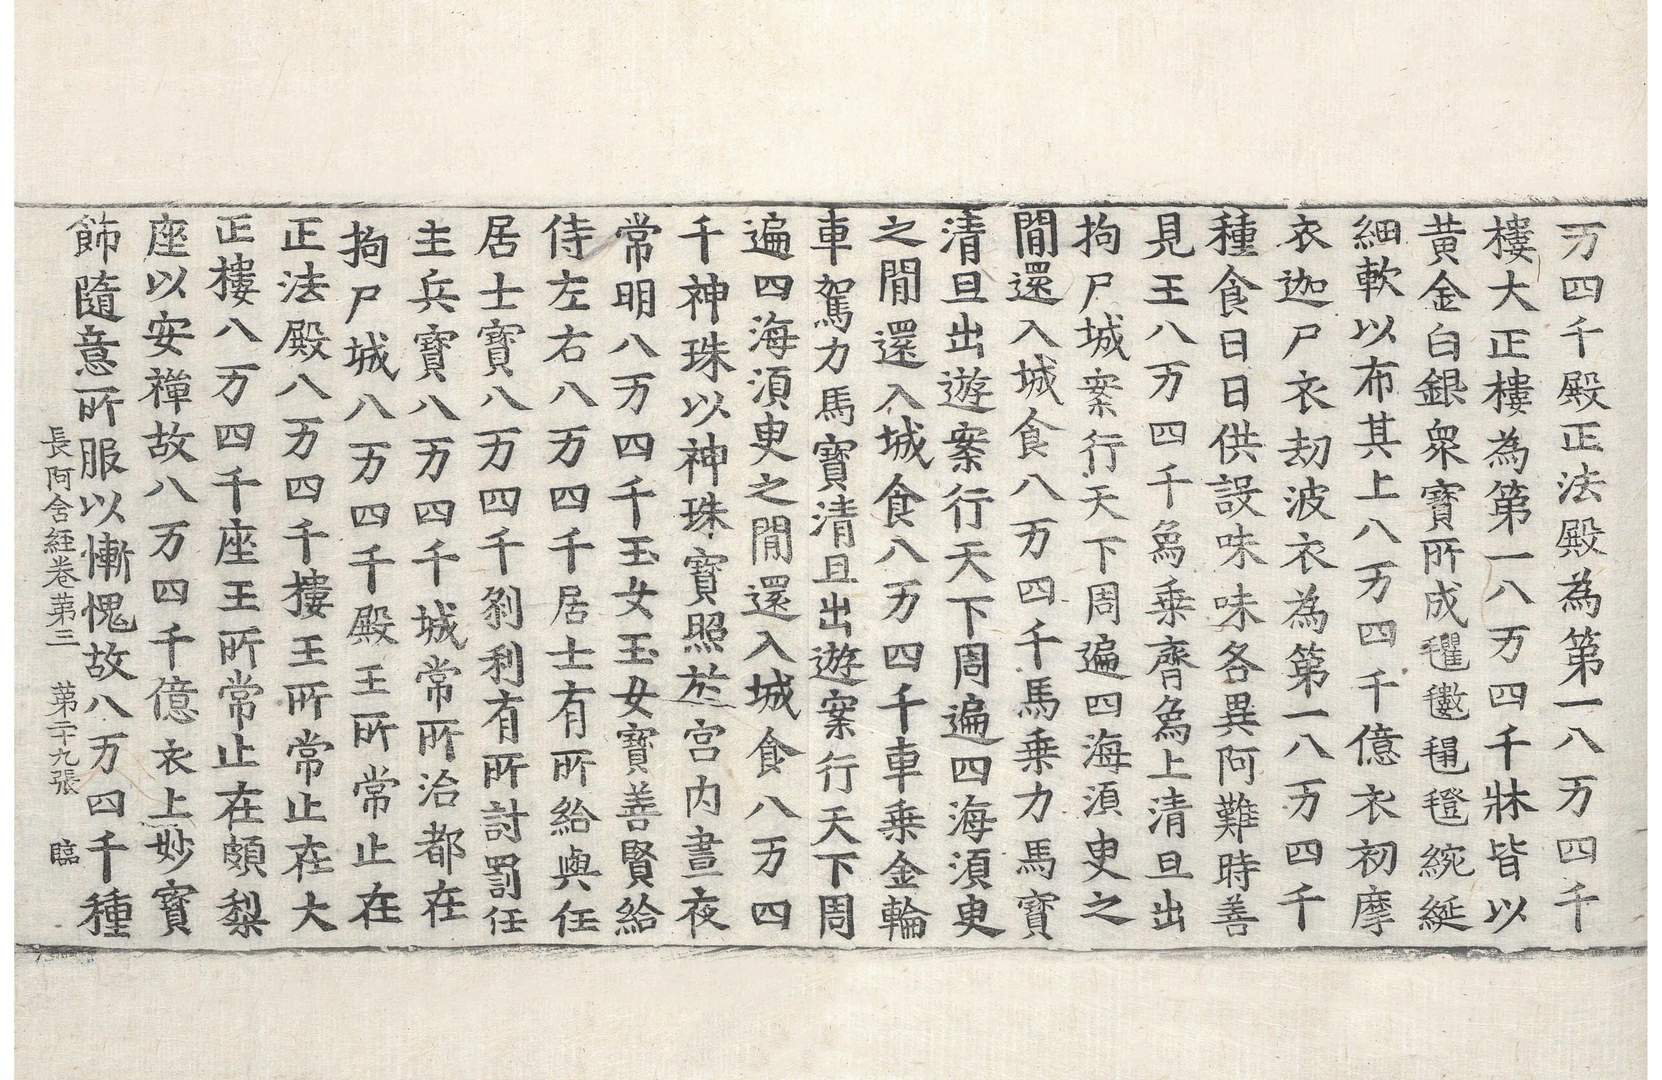 万四千殿正法殿為第一八万四千
樓大正樓為第一八万四千牀皆以
黃金白銀眾寶所成氍氀毾㲪綩綖
細軟以布其上八万四千億衣初摩
衣迦尸衣劫波衣為第一八万四千
種食日日供設味味各異阿難時善
見王八万四千象乘齊象上清旦出
拘尸城案行天下周遍四海須臾之
閒還入城食八万四千馬乘力馬寶
清旦出遊案行天下周遍四海須臾
之閒還入城食八万四千車乘金輪
車駕力馬寶清旦出遊案行天下周
遍四海須臾之閒還入城食八万四
千神珠以神珠寶照於宮內晝夜
常明八万四千玉女玉女寶善賢給
侍左右八万四千居士有所給與任
居士寶八万四千剎利有所討罰任
主兵寶八万四千城常所治都在
拘尸城八万四千殿王所常止在
正法殿八万四千樓王所常止在大
正樓八万四千座王所常止在頗梨
座以安禪故八万四千億衣上妙寶
飾隨意所服以慚愧故八万四千種
長阿含經卷第三 第二十九張 臨